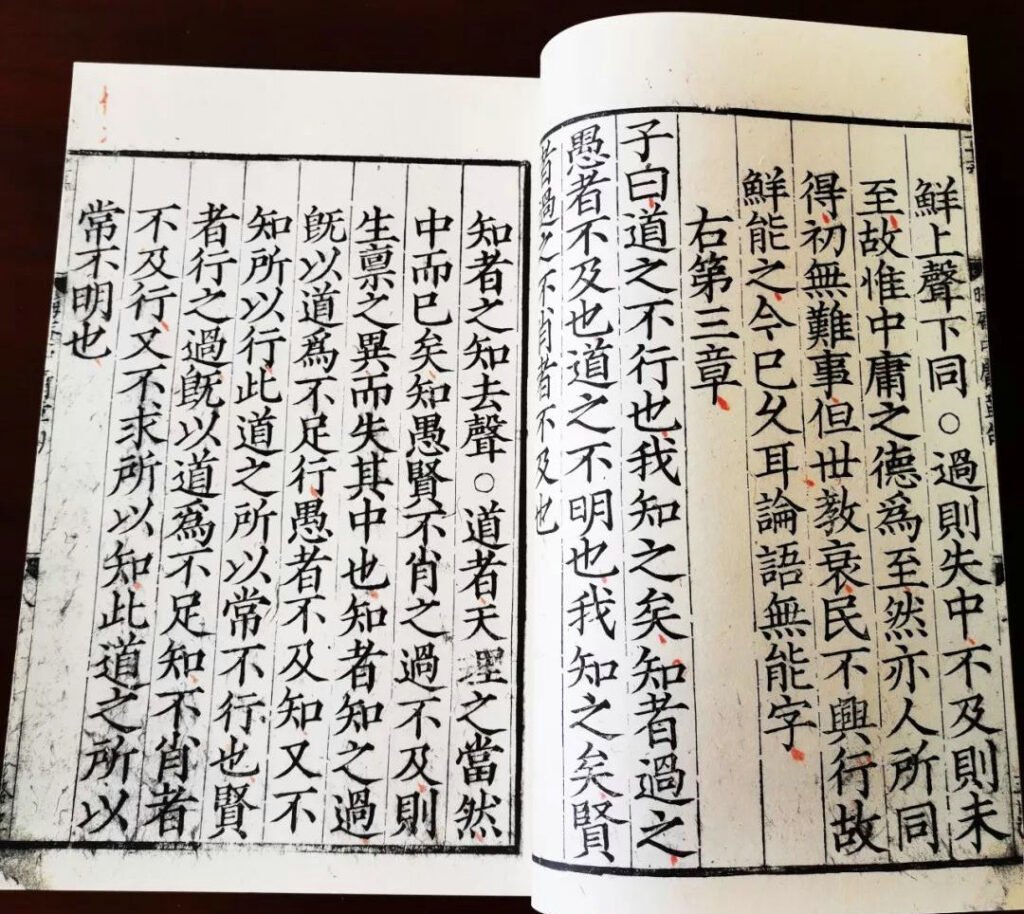 鮮上聲下同○過則失中不及則未
至故惟中庸之德為至然亦人所同
得初無難事但世教衰民不興行故
鮮能之今已久耳論語無能字
右第三章
子曰道之不行也我知之矣知者過之
愚者不及也道之不明也我知之矣賢
者過之不肖者不及也
知者之知去聲○道者天理之當然
中而已矣知愚賢不肖之過不及則
生禀之異而失其中也知者知之過
既以道為不足行愚者不及知又不
知所以行此道之所以常不行也賢
者行之過既以道為不足知不肖者
不及行又不求所以知此道之所以
常不明也